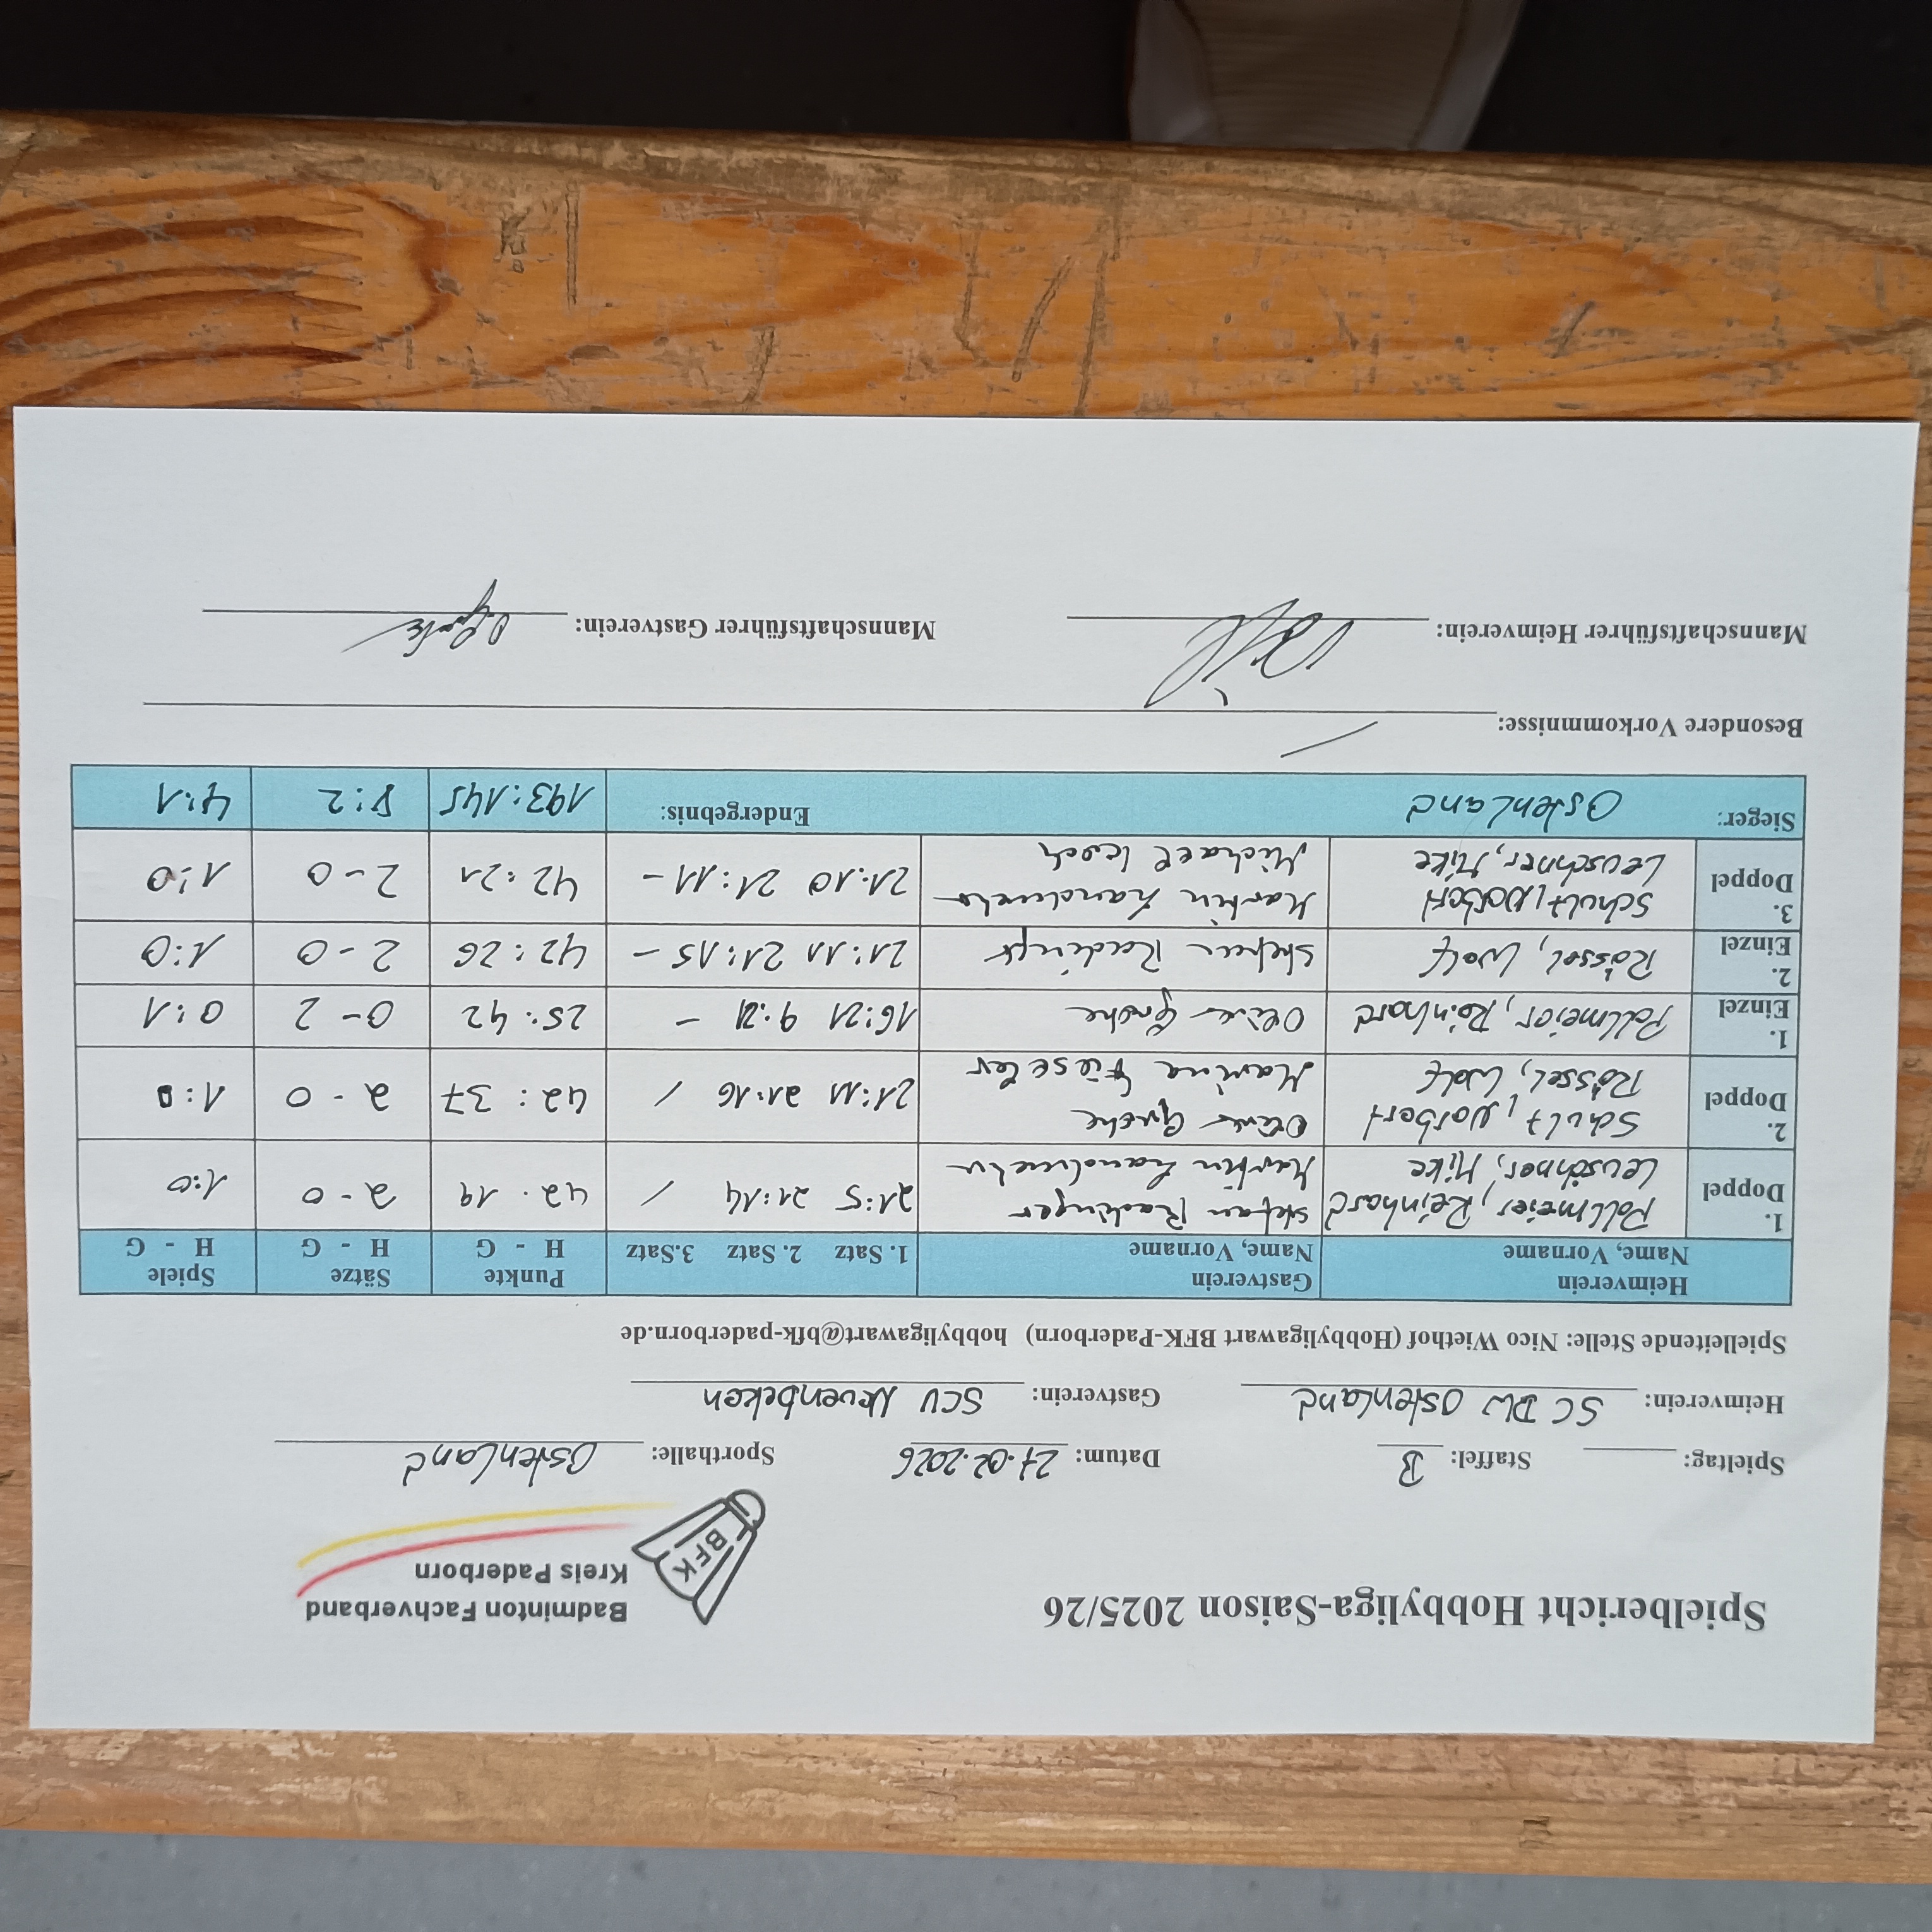 Spielbericht Hobbyliga-Saison 2025/26
Badminton Fachverband
Kreis Paderborn
BFK
Spieltag: Staffel: B Datum: 27.02.2026 Sporthalle: Ostenland
Heimverein: SC BW Ostenland Gastverein: SCV Neuenbeken
Spielleitende Stelle: Nico Wiethof (Hobbyligawart BFK-Paderborn) hobbyligawart@bfk-paderborn.de
Heimverein Name, Vorname Gastverein Name, Vorname 1. Satz 2. Satz 3.Satz Punkte H - G Sätze H - G Spiele H - G
1. Doppel Pollmeier, Reinhard Stefan Redinger 21:5 21:14 / 42 . 19 2 - 0 1:0
Leuschner, Mike Martin
2. Doppel Schulz, Norbert Oliver Grothe 21:11 21:16 / 42 : 37 2 - 0 1:0
Rössel, Wolf Marina Fieseler
1. Einzel Pollmeier, Reinhard Oliver Grothe 16:21 9:21 - 25:42 0-2 0:1
2. Einzel Rössel, Wolf Stefan 21:11 21:15 - 42:26 2-0 1:0
3. Doppel Schulz, Norbert Martin 21:10 21:11 - 42:21 2-0 1:0
Leuschner, Mike Michael Koch
Sieger: Ostenland Endergebnis: 193:145 8:2 4:1
Besondere Vorkommnisse: /
Mannschaftsführer Heimverein: Mannschaftsführer Gastverein: